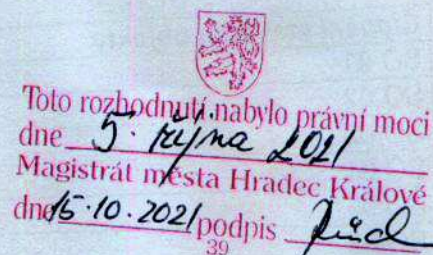 Toto rozhodnutí nabylo právní moci
dne 5. října 2021
Magistrát města Hradec Králové
dne 15.10.2021 podpis
39